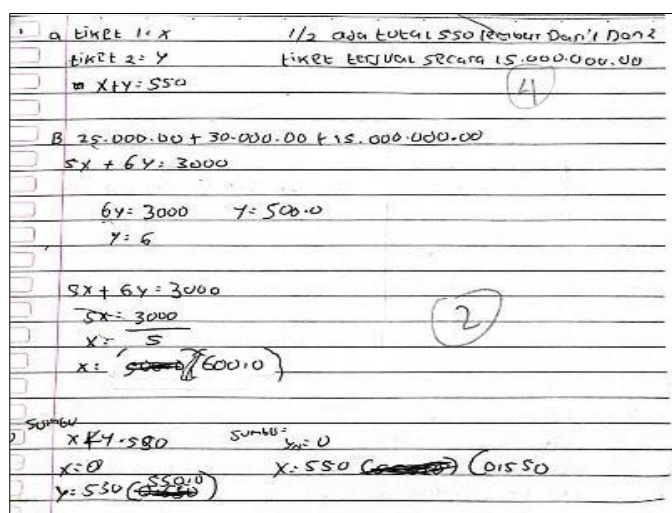 a tiket 1: x 1/2 ada total 550 lembar Dari 1 Dan 2
tiket 2: y tiket terjual secara 15.000.000.00
x+y=550
4
B 25.000.00 + 30.000.00 + 15.000.000.00
5x + 6y = 3000
6y = 3000 y = 500.0
y = 6
5x + 6y = 3000
5x = 3000
x = 5
x = (600,0)
2
sumbu sumbu=
x+y=550 y = 0
x=0 x=550 (01550
y=530 (550,0)